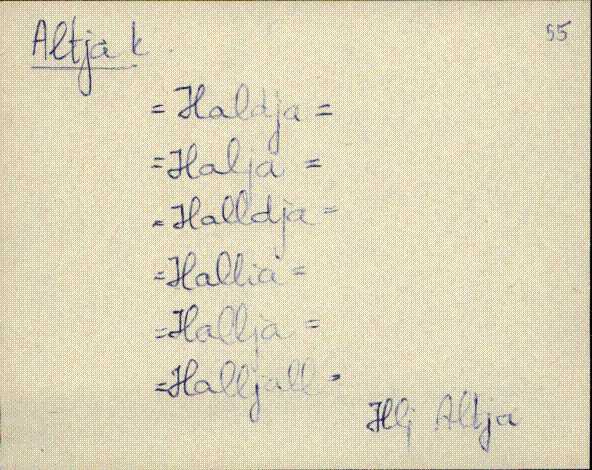 Altja k. 55
= Haldja =
= Halja =
= Halldja =
= Hallia =
= Hallja =
= Halljall =
Hlj Altja